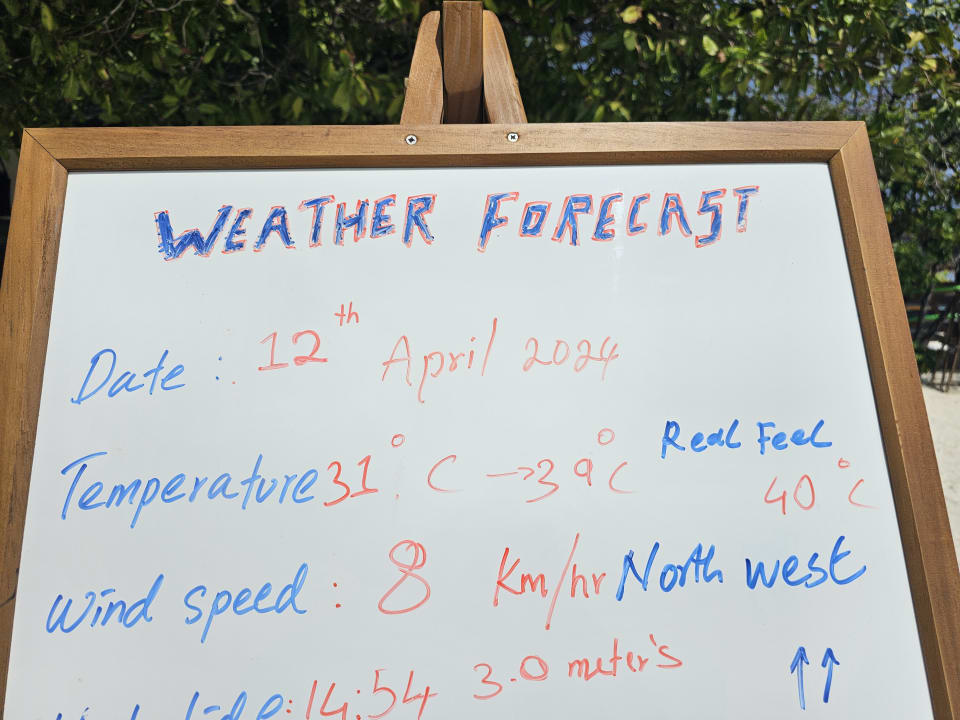 WEATHER FORECAST
Date : 12th April 2024
Temperature 31°C → 39°C Real Feel 40°C
Wind speed : 8 Km/hr North west
: 14:54 3.0 meter's ↑↑